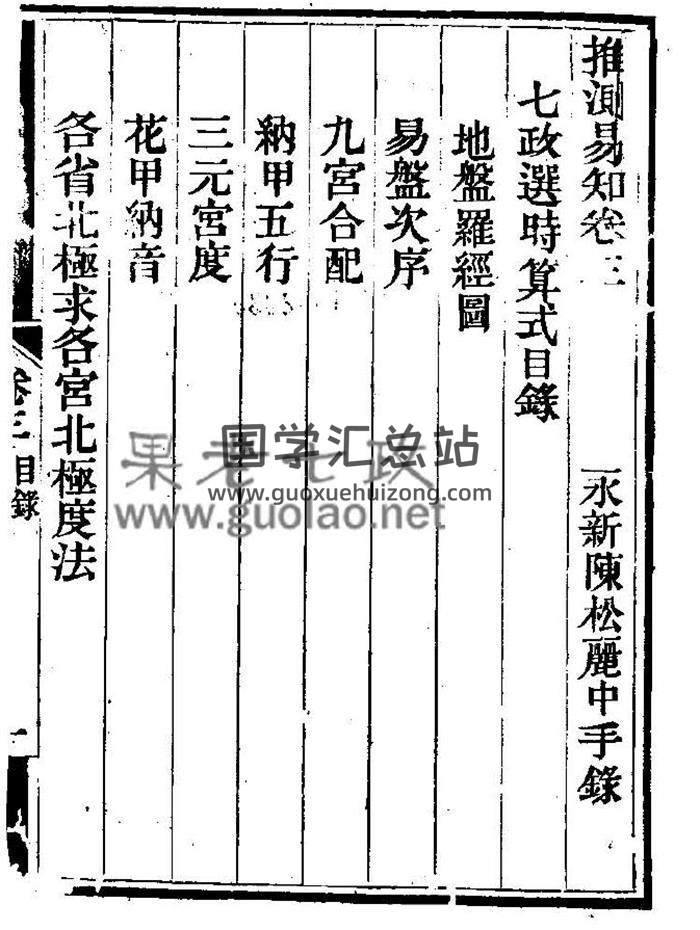 推測易知卷三 永新陳松麗中手錄
七政選時算式目錄
地盤羅經圖
易盤次序
九宮合配
納甲五行
三元宮度
花甲納音
各省北極求各宮北極度法
卷三 目錄
一
国学汇总站
www.guoxuehuizong.com
果老七政
www.guolao.net